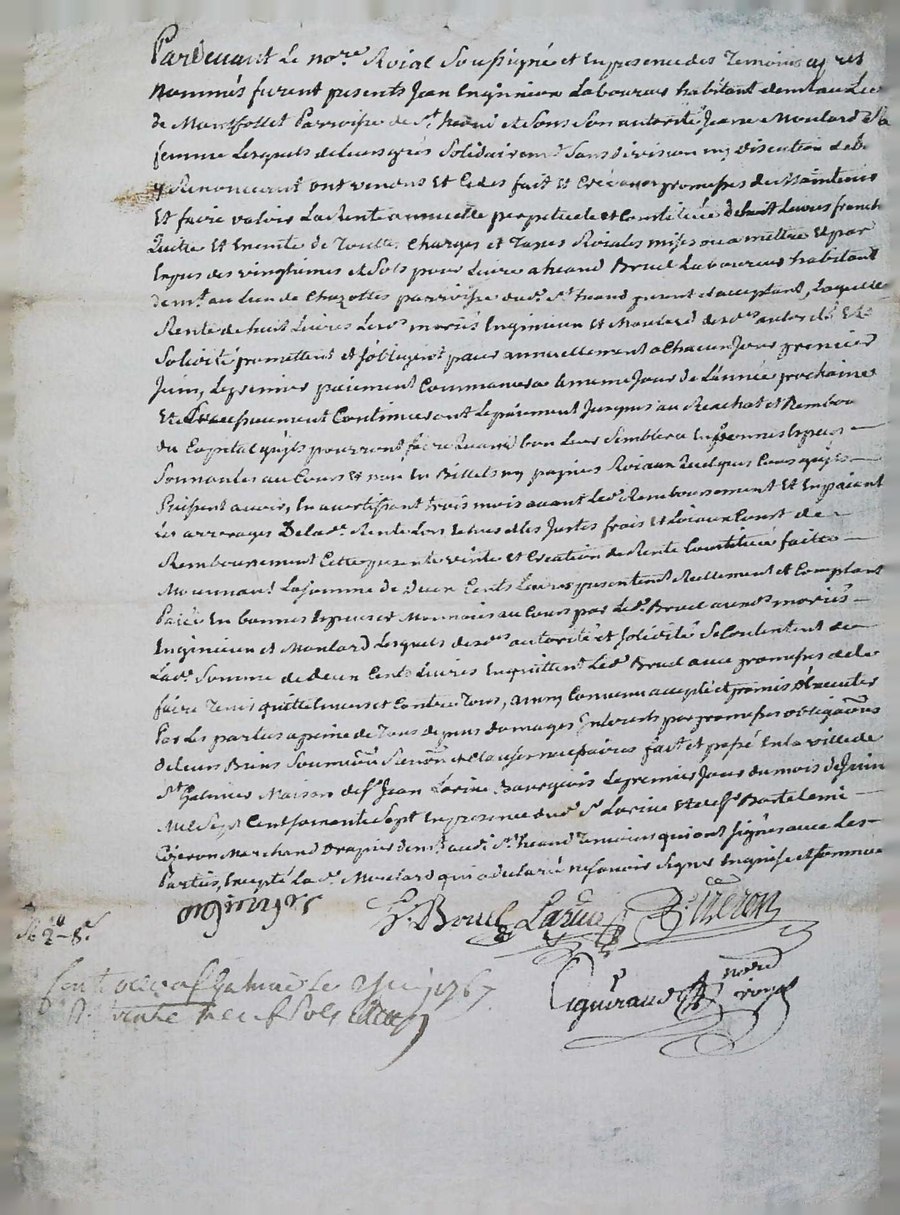 Pardevant Le nore Roial Soussigné et En presence des Temoins apres
Nommés furent presents Jean Enginieux Laboureur habitant demt au Lieu
de Montfollet Parroisse de St heand et Sous Son autorité Jeane Moulard Sa
femme Lesquels de leurs grés Solidairemt Sans division ny discution de
y Renonceant ont vendus Et Cedés fait Et Créé avec promesses de Maintenir
Et faire valoir La Rente annuelle perpetuelle et Constituée de huit Livres franche
Quitte Et Exempte de Touttes Charges et Taxes Roiales mises ou a mettre Et par
Exprès des vingtiemes et Sols pour Livre a heand Bruel Laboureur habitant
demt au Lieu de Chazottes parroisse dudt St heand present et acceptant, Laquelle
Rente de huit Livres Lesds mariés Enginieux Et Moulard desds autorité Et
Soliditté promettent et s'obligent paier annuellement a Chacun Jour premier
Juin, Le premier paiement Commancera a meme Jour de L'année prochaine
Et Successivement Continueront Le paiement Jusques au Reachat et Rembour
du Capital qu'ils pourront faire Quand bon Leur Semblera En bonnes Especes
Sonnantes au Cours Et non En Billets ny papiers Roiaux Quelques Cours qu'ils
Puissent avoir, En avertissant trois mois avant Ledt Remboursement Et En paiant
Les arrerages De lad. Rente Lors Echus Les Justes frais Et Loiaux Couts de
Remboursement Cette presente vente et Création de Rente Constituée faitte
Moiennant La somme de deux Cents Livres presentement Réellement et Comptant
Paiée En bonnes Especes et Monnoies au Cours par Ledt Bruel auxds mariés
Enginieux et Moulard Lesquels desds autorité et solidité Se Contentent de
Lade Somme de deux Cents Livres En quittent Ledt Bruel avec promesses de le
faire Tenir quitte Envers et Contre Tous, ainsy Convenu accepté et promis Executer
Par Les parties a peine de Tous depens domages Interets par promesses obligaõns
de leurs Biens Soumissõns Renõns et Clauses necessaires fait et passé En la ville de
St Galmier Maison de Sr Jean Larine Bourgeois Le premier Jour du mois de Juin
Mil Sept Cent soixante Sept En presence dudt Sr Larine Et de Sr Bartelemi
Marchand Drapier demt audt St heand Temoins qui ont signés avec Les
Parties, Excepté La de Moulard qui a declaré ne savoir Signer Enquise et sommée
Bruel Larine
nore
royal
Contrôlé a St Galmier le 2 Juin 1767
Rt trente neuf Sols